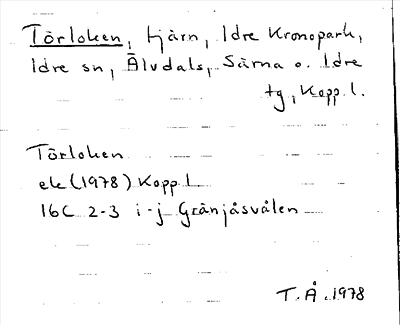 Törloken, tjärn, Idre Kronopark,
Idre sn, Älvdals, Särna o. Idre
tg, Kopp. l.
Törloken
ek (1978) Kopp L
16C 2-3 i-j Gränjåsvålen
T. Å. 1978